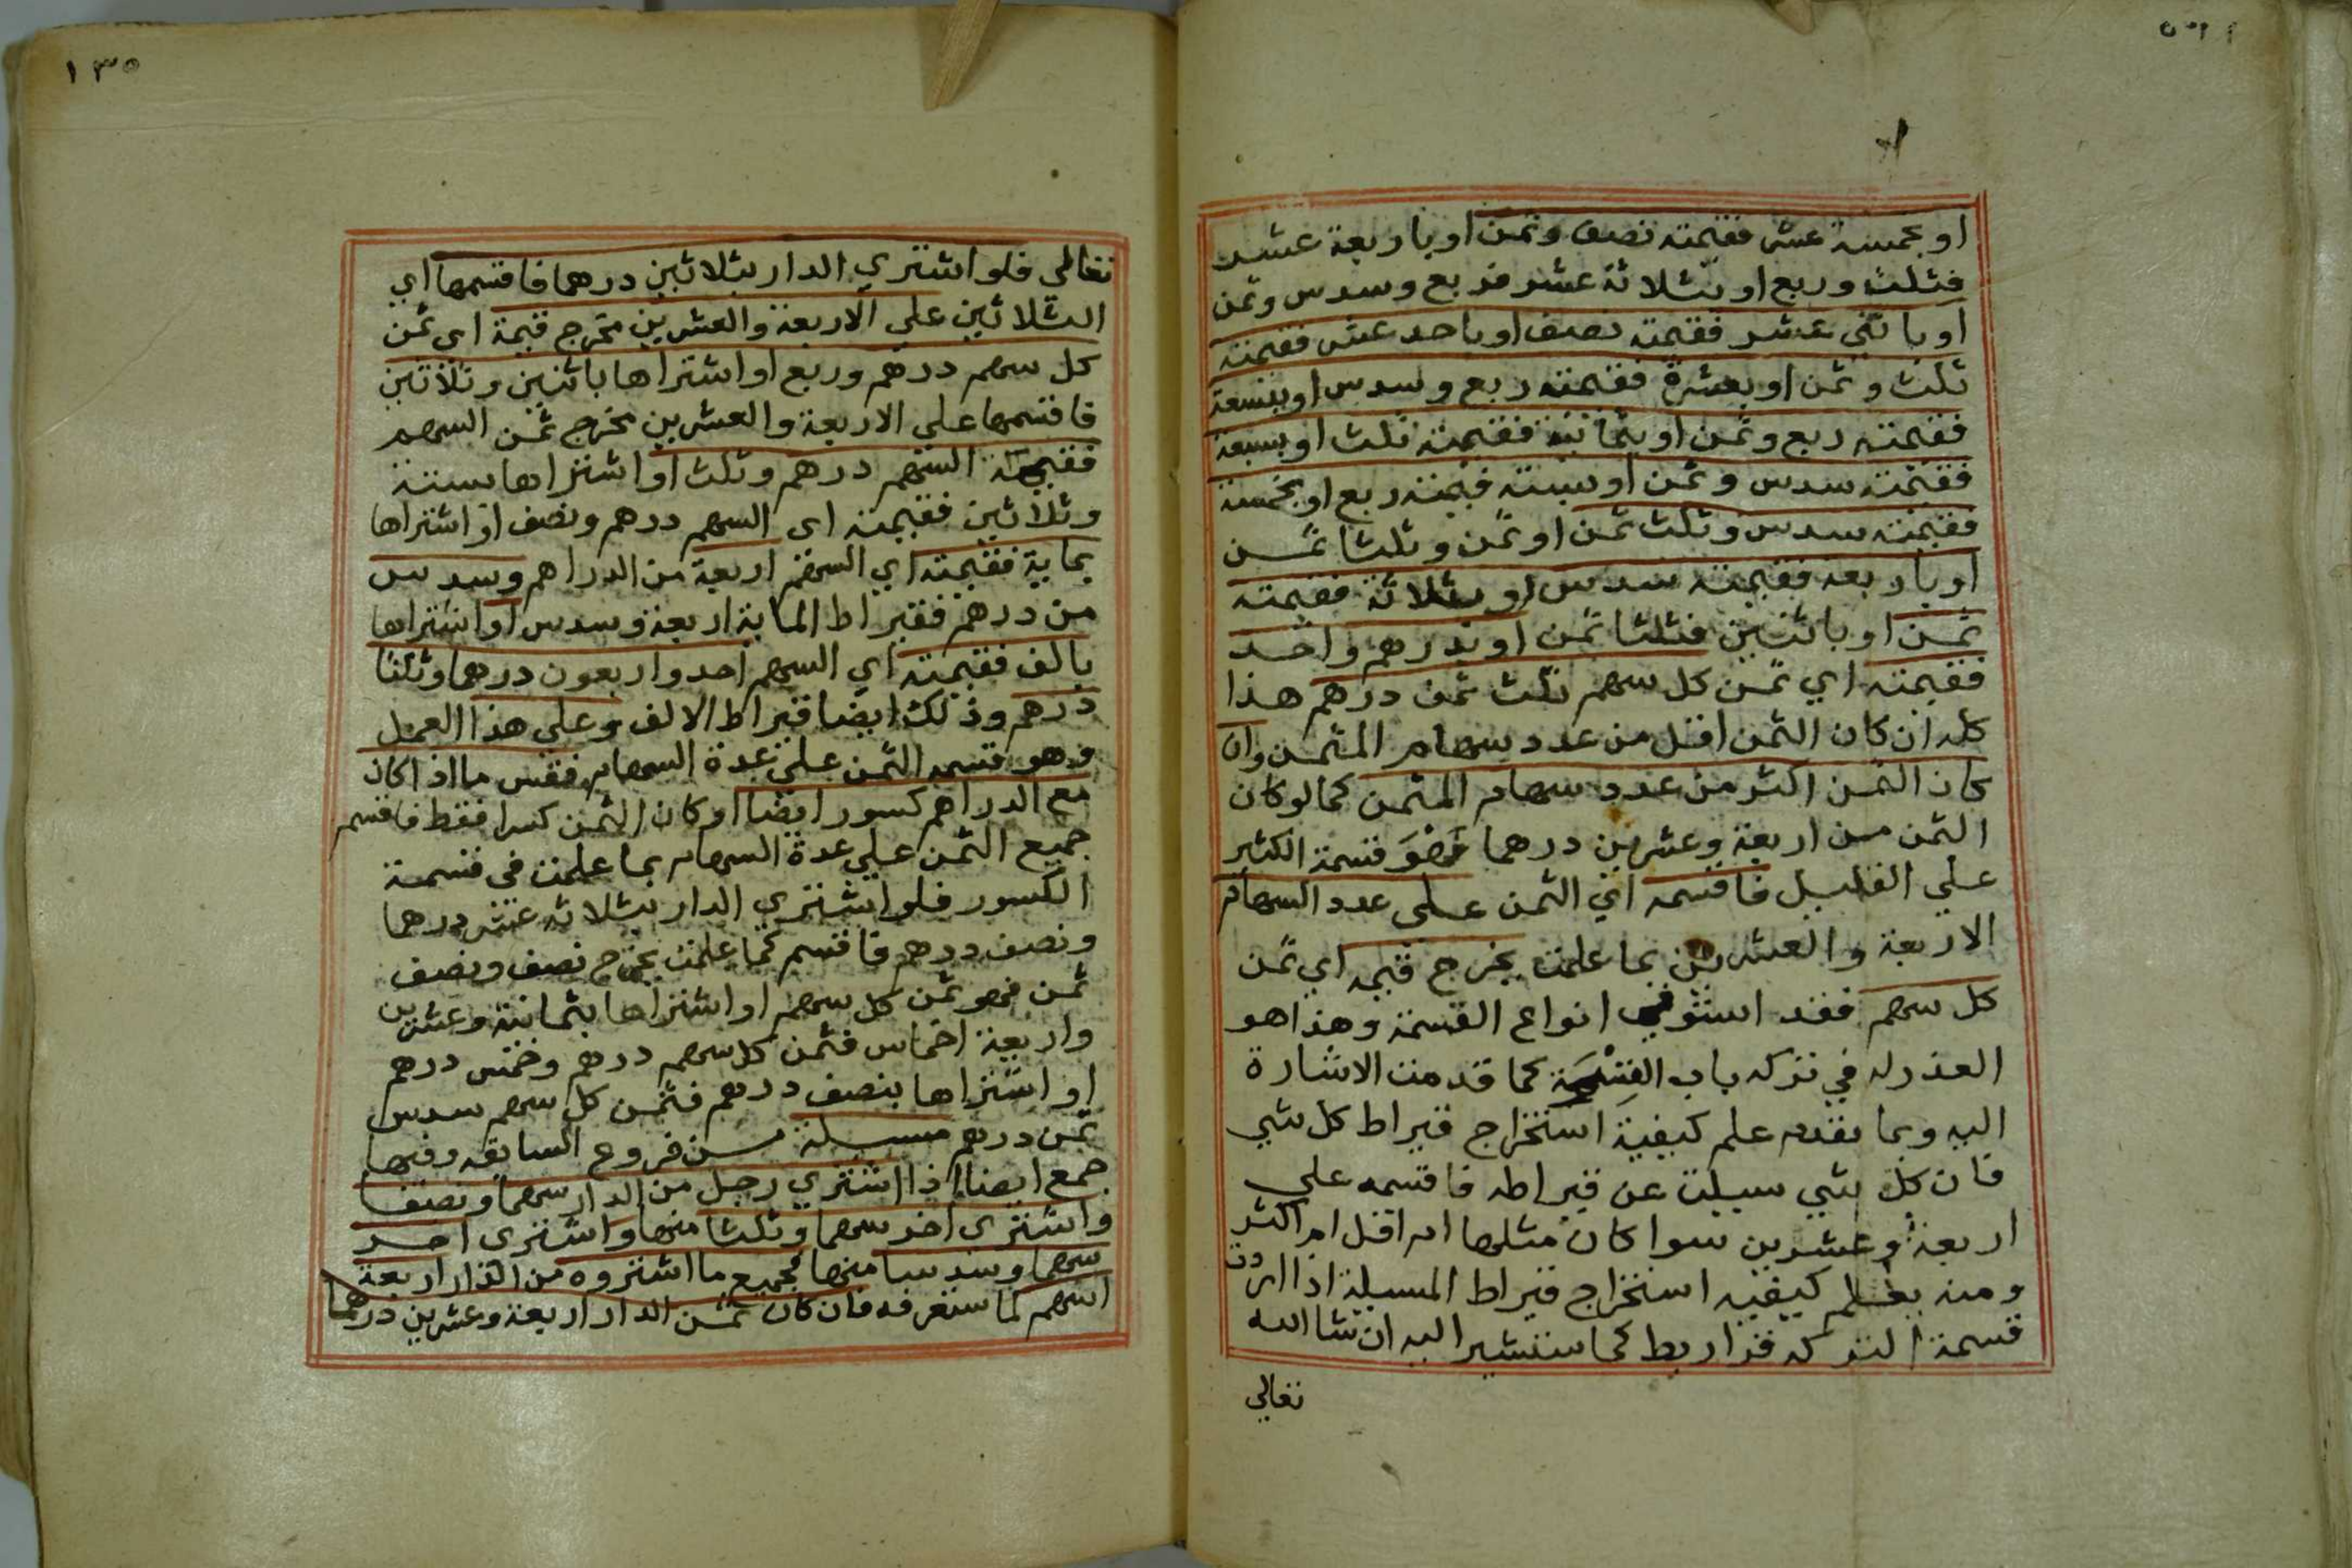 او بخمسة عشر فقيمته نصف وثمن او باربعة عشر
فثلث وربع او بثلاثة عشر فربع وسدس وثمن
او باثني عشر فقيمته نصف او باحد عشر فقيمته
ثلث وثمن او بعشرة فقيمته ربع وسدس او بتسعة
فقيمته ربع وثمن او بثمانية فقيمته ثلث او بسبعة
فقيمته سدس وثمن او ستة فقيمته ربع او بخمسة
فقيمته سدس وثلث ثمن او ثمن وثلثا ثمن
او باربعة فقيمته سدس او بثلاثة فقيمته
ثمن او باثنين فثلثا ثمن او بدرهم واحد
فقيمته اي ثمن كل سهم ثلث ثمن درهم هذا
كله ان كان الثمن اقل من عدد سهام المثمن وان
كان الثمن اكثر من عدد سهام المثمن كما لو كان
الثمن من اربعة وعشرين درهما فهو قسمة الكثير
على القليل فاقسمه اي الثمن على عدد السهام
الاربعة والعشرين بما علمت يخرج قيمه اي ثمن
كل سهم فقد استوفي انواع القسمة وهذا هو
العذر له في تركه باب القسمة كما قدمت الاشارة
اليه وبما تقدم علم كيفية استخراج قيراط كل شي
فان كل شي سيلت عن قيراطه فاقسمه علي
اربعة وعشرين سوا كان مثلها ام اقل ام اكثر
ومنه يعلم كيفيه استخراج قيراط المسيلة اذا اردت
قسمة التركه قراريط كما سنشير اليه ان شا الله
تعالي
١٣٥
تعالى فلو اشتري الدار بثلاثين درهما فاقسمها اي
الثلاثين علي الاربعة والعشرين مخرج قيمة اي ثمن
كل سهم درهم وربع او اشتراها باثنين وثلاثين
فاقسمها على الاربعة والعشرين مخرج ثمن السهم
فقيمة السهم درهم وثلث او اشتراها بستة
وثلاثين فقيمته اى السهم درهم ونصف او اشتراها
بماية فقيمته اي السهم اربعة من الدراهم وسدس
من درهم فقيراط الماية اربعة وسدس او اشتراها
بالف فقيمته اي السهم احد واربعون درهما وثلثا
درهم وذلك ايضا قيراط الالف وعلي هذا العمل
وهو قسمه الثمن علي عدة السهام فقس ما اذا كان
مع الدراهم كسور ايضا او كان الثمن كسرا فقط فاقسم
جميع الثمن علي عدة السهام بما علمت في قسمة
الكسور فلو اشتري الدار بثلاثه عشر درهما
ونصف درهم فاقسم كما علمت يخرج نصف ونصف
ثمن فهو ثمن كل سهم او اشتراها بثمانية وعشرين
واربعة اخماس فثمن كل سهم درهم وخمس درهم
او اشتراها بنصف درهم فثمن كل سهم سدس
ثمن درهم مسيلة من فروع السابقه وفيها
جمع ايضا اذا اشتري رجل من الدار سهما ونصفا
واشترى اخر سهما وثلثا منها واشترى اخر
سهما وسدسا منها فجميع ما اشتروه من الدار اربعة
اسهم لما ستعرفه فان كان ثمن الدار اربعة وعشرين درهما